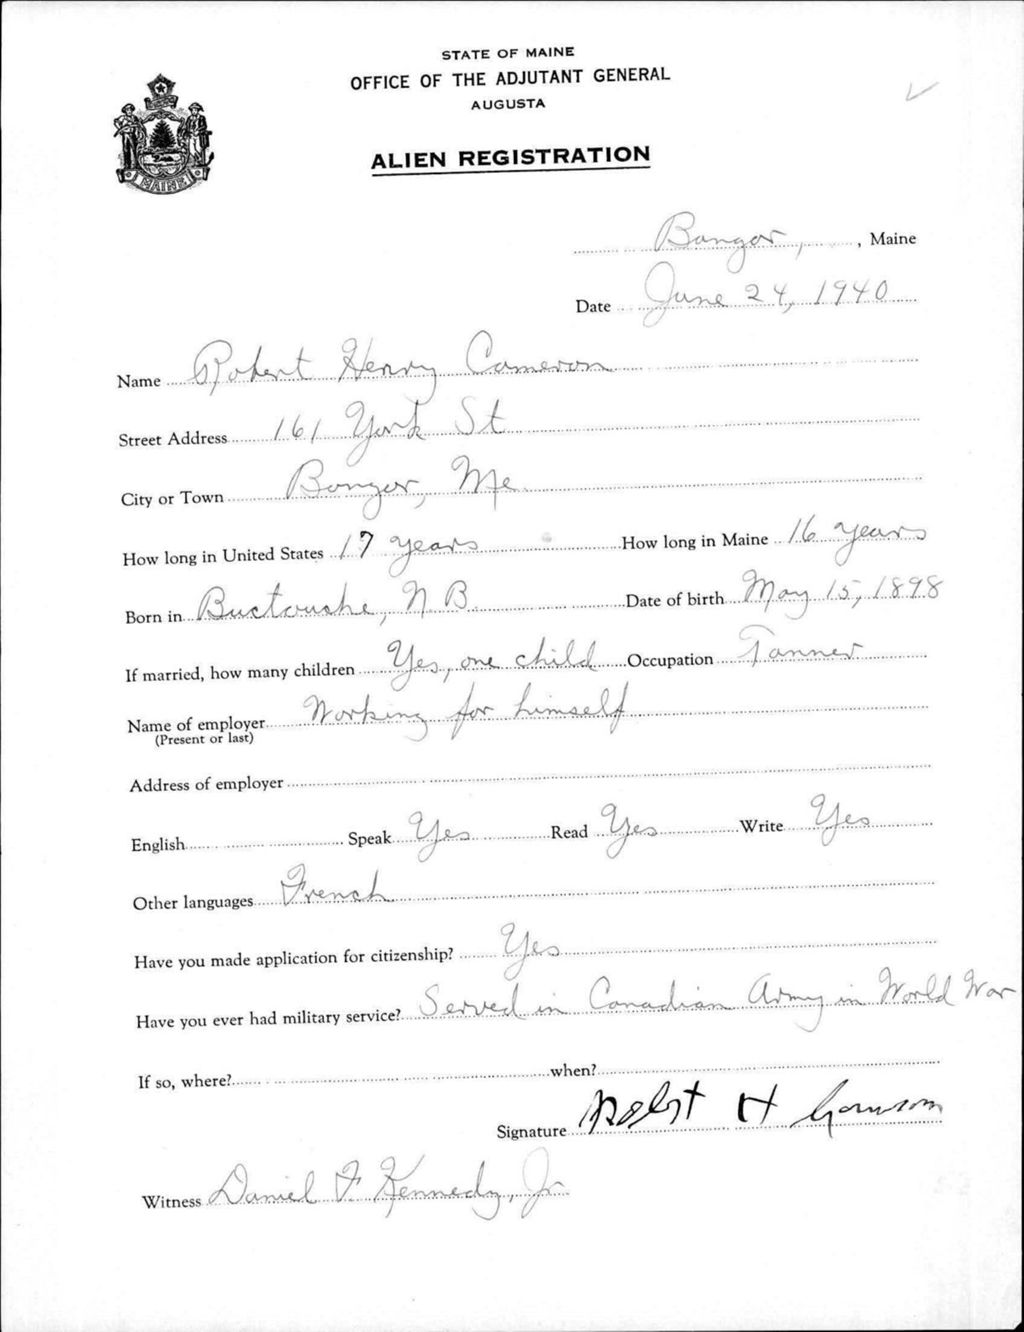 STATE OF MAINE
OFFICE OF THE ADJUTANT GENERAL
AUGUSTA
ALIEN REGISTRATION
MAINE
Bangor, , Maine
Date June 24, 1940
Name Robert Henry Cameron
Street Address 161 York St
City or Town Bangor, Me
How long in United States 17 years How long in Maine 16 years
Born in Buctouche, N B Date of birth May 15, 1898
If married, how many children Yes, one child Occupation Tanner
Name of employer Working for himself
(Present or last)
Address of employer
English Speak Yes Read Yes Write Yes
Other languages French
Have you made application for citizenship? Yes
Have you ever had military service? Served in Canadian Army in World War
If so, where? when?
Signature Robert H Cameron
Witness Daniel F. Kennedy, Jr.